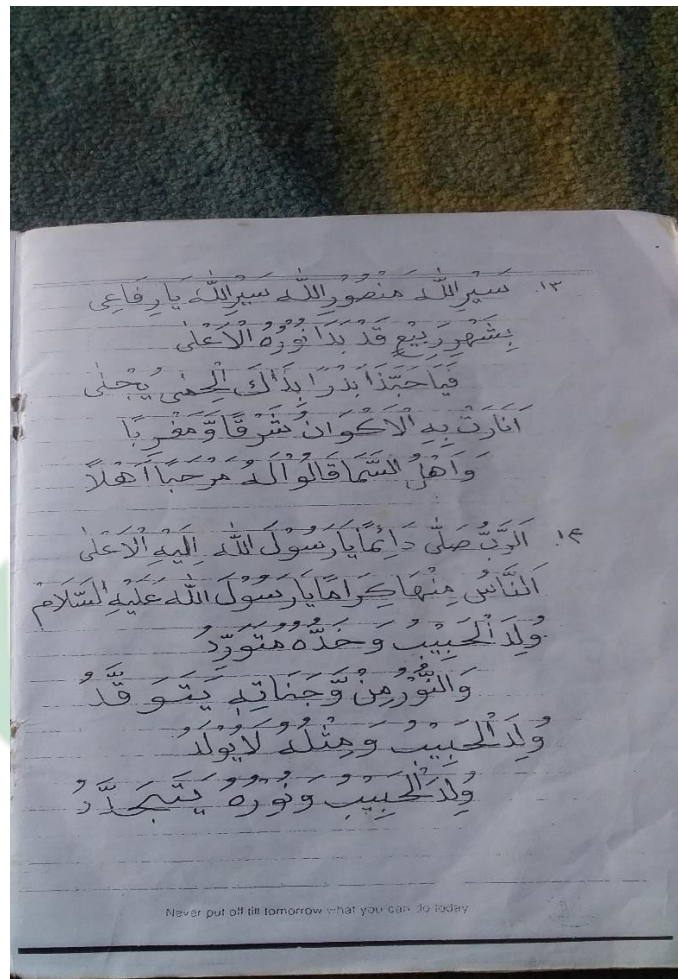 ١٣. سَيْرِ اللّٰه مَنْصُوْرِ اللّٰه سَيْرِ اللّٰه يَا رِفَاعِى
بِشَهْرِ رَبِيْعٍ قَدْ بَدَا نُوْرُهُ الْاَعْلٰى
فَيَا حَبَّذَا بَدْرًا بِذَاكَ الْحِمٰى يُجْلٰى
اَنَارَتْ بِهِ الْاَكْوَانُ شَرْقًا وَّمَغْرِبًا
وَاَهْلُ السَّمَا قَالُوْا لَهُ مَرْحَبًا اَهْلًا
١٤. اَلرَّبُّ صَلّٰى دَائِمًا يَا رَسُوْلَ اللّٰه اِلَيْهِ الْاَعْلٰى
اَلنَّاسُ مِنْهَا كِرَامًا يَا رَسُوْلَ اللّٰه عَلَيْهِ السَّلَامْ
وُلِدَ الْحَبِيْبُ وَخَدُّهُ مُتَوَرِّدُ
وَالنُّوْرُ مِنْ وَّجَنَاتِهِ يَتَوَقَّدُ
وُلِدَ الْحَبِيْبُ وَمِثْلُهُ لَا يُوْلَدُ
وُلِدَ الْحَبِيْبُ وَنُوْرُهُ يَتَجَدَّدُ
Never put off till tomorrow what you can do today